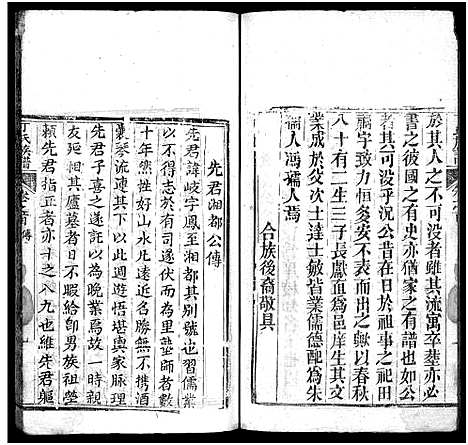 於其人之可述者雖其流寓卒塟亦必
書之彼國之有史亦猶家之有譜也如公
者其可沒乎况公之增入本祀田
禍字致力恒於灸安不表而出之歟以春秋
八十有二生三子長獻直為邑庠生其文
業成於父次士達士敏皆業儒德配為朱
孺人馮孺人焉
合族後裔敬具
先君湘都公傳
先君諱岐字鳳至湘都其別號也習儒業
以不得志於有司遂伏而為里塾師者數
十年然性好山水凡遠近名勝無不攜酒
囊琴流連其際以此週遊悟嘗與家脉理
先君子喜之遂以為晚業焉故一時親
友延相其廬墓者日不暇給即男族祖塋
賴先君指正者亦十之八九也維先君軀
丁氏族譜